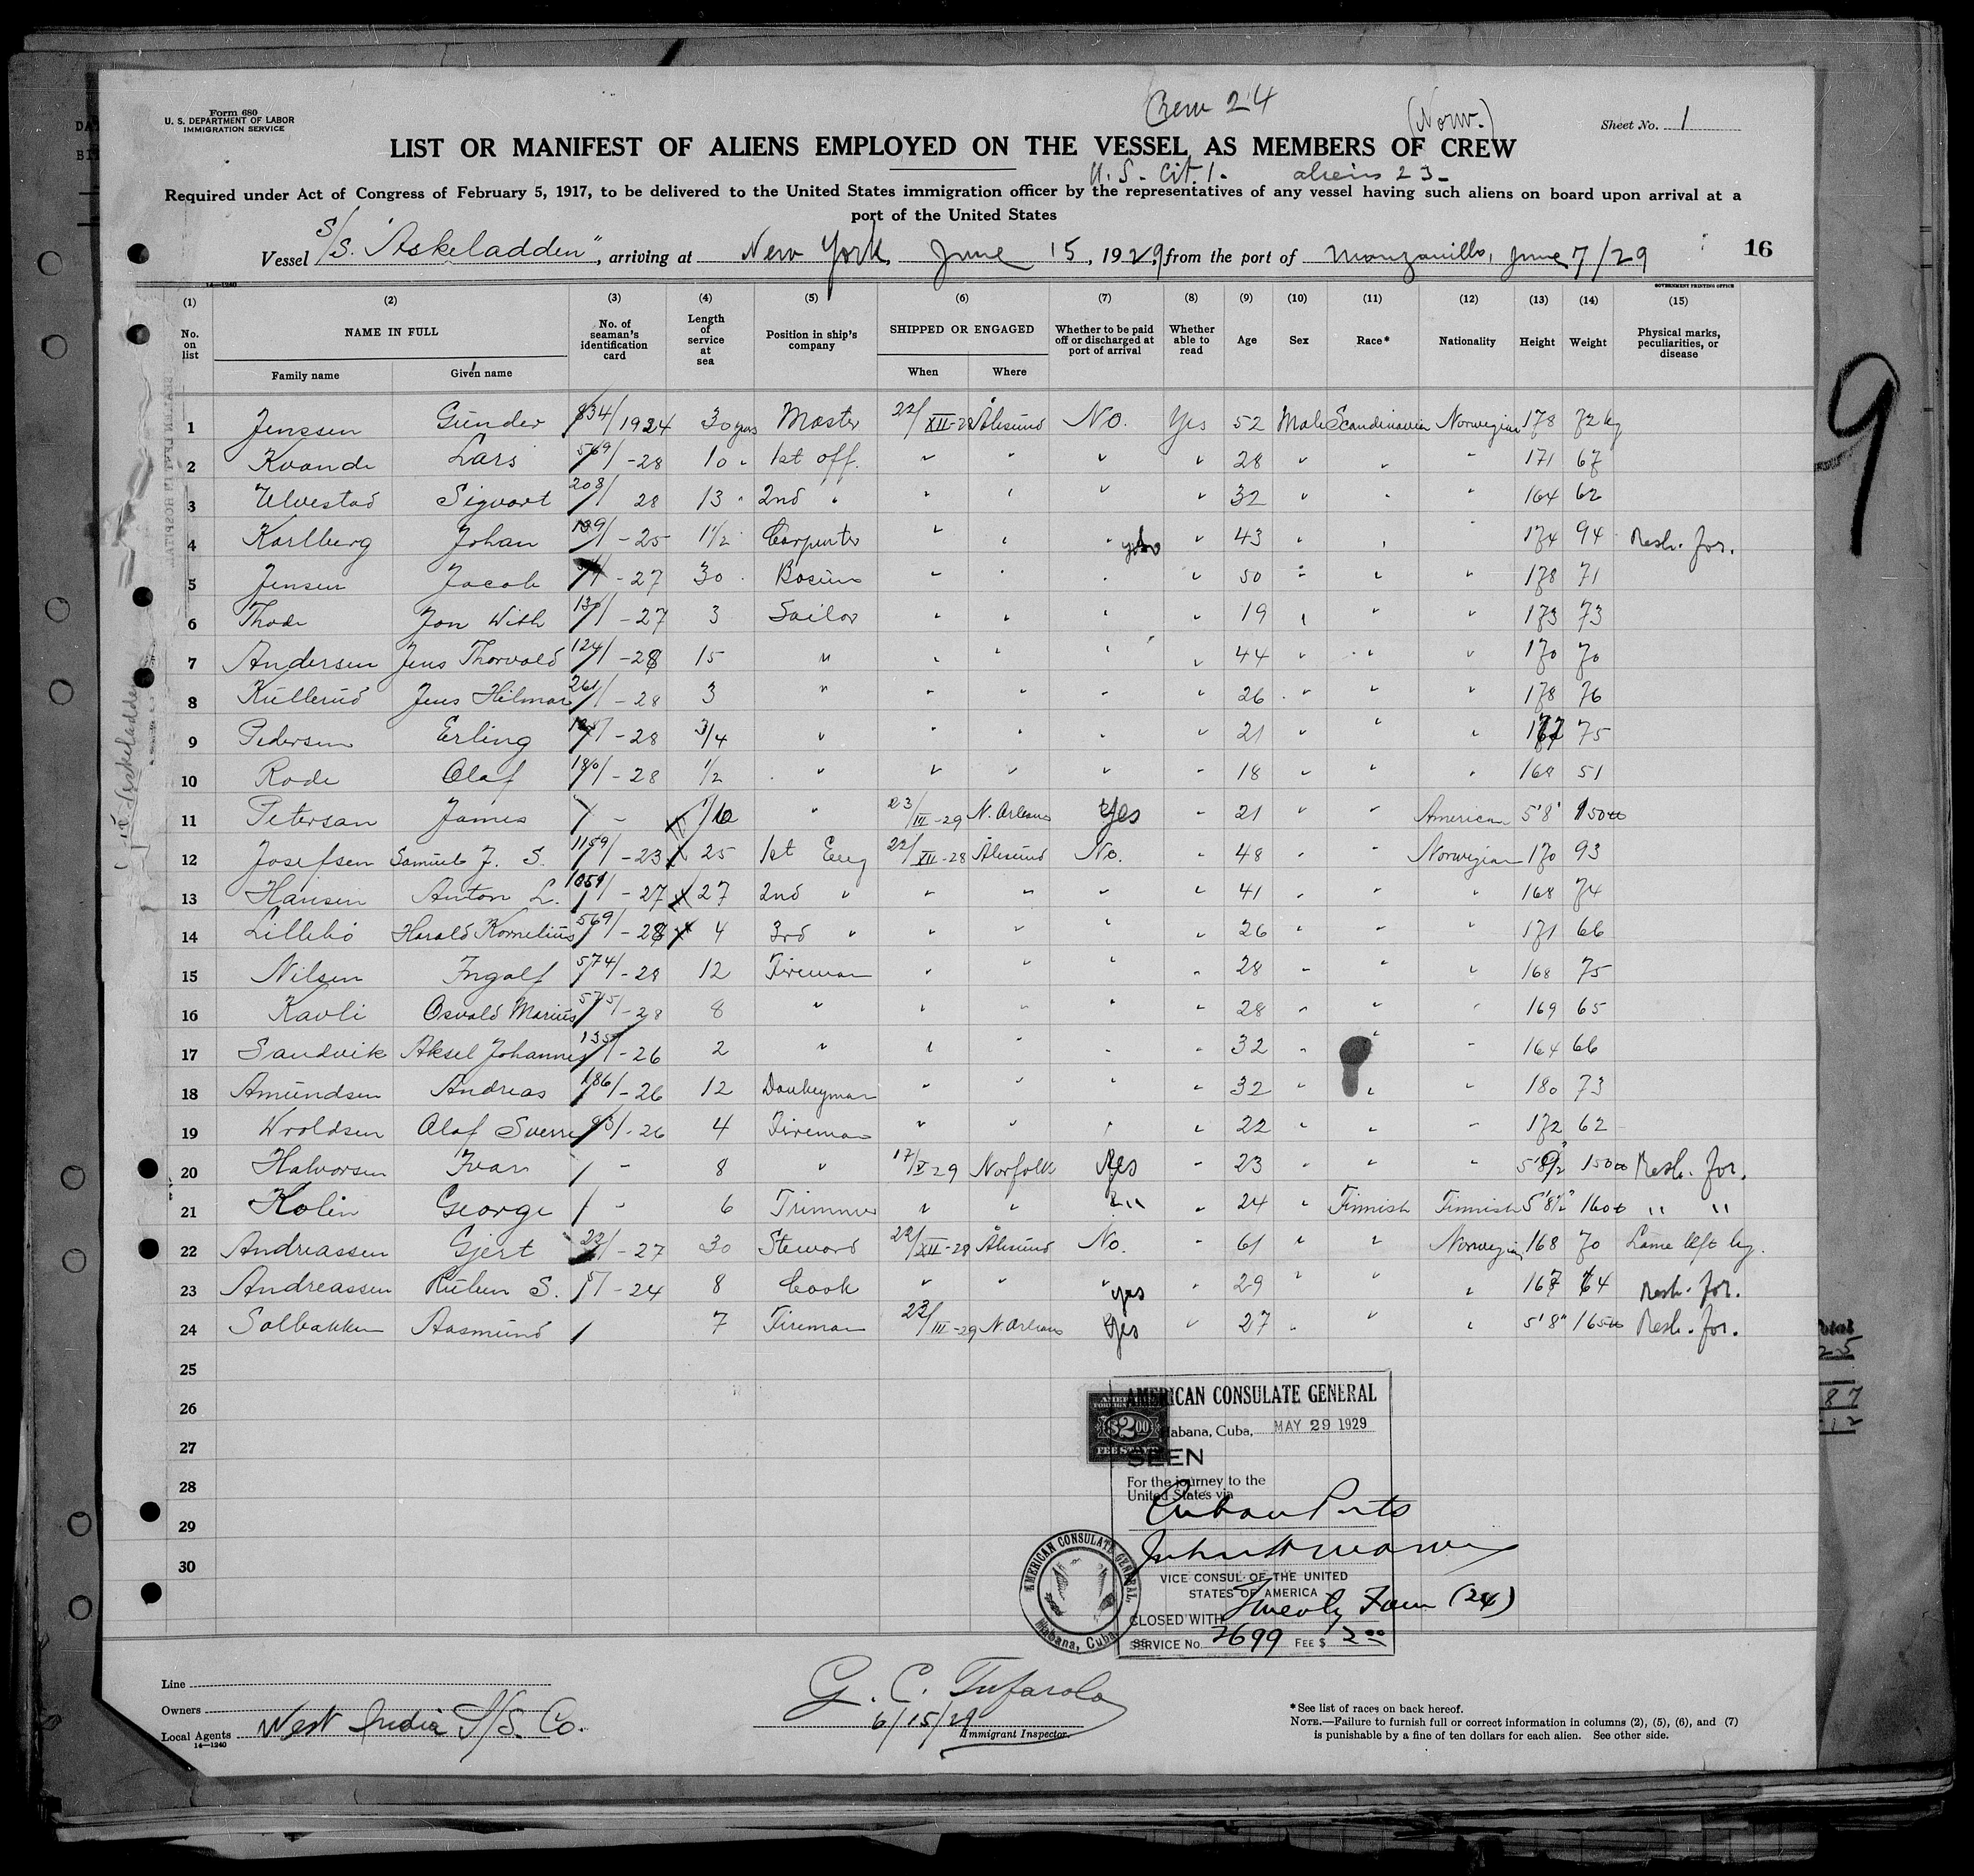 Form 680
U. S. DEPARTMENT OF LABOR
IMMIGRATION SERVICE
Crew 24
(Norw.)
Sheet No. 1
LIST OR MANIFEST OF ALIENS EMPLOYED ON THE VESSEL AS MEMBERS OF CREW
U. S. Cit. 1. aliens 23-
Required under Act of Congress of February 5, 1917, to be delivered to the United States immigration officer by the representatives of any vessel having such aliens on board upon arrival at a
port of the United States
Vessel S/S. "Askeladden", arriving at New York, June 15, 1929, from the port of Manzanillo, June 7/29
16
14—1240
GOVERNMENT PRINTING OFFICE
(1) (2) (3) (4) (5) (6) (7) (8) (9) (10) (11) (12) (13) (14) (15)
No. on list NAME IN FULL Family name Given name No. of seaman's identification card Length of service at sea Position in ship's company SHIPPED OR ENGAGED When Where Whether to be paid off or discharged at port of arrival Whether able to read Age Sex Race* Nationality Height Weight Physical marks, peculiarities, or disease
1 Jenssen Gunder 834/1924 30 yrs Master 22/XII-28 Ålesund No. Yes 52 Male Scandinavian Norwegian 178 72 kg
2 Kvande Lars 569/-28 10 " 1st off. " " " " 28 " " " 171 67
3 Ulvestad Sigvart 208/28 13 " 2nd " " " " " 32 " " " 164 62
4 Karlberg Johan 139/-25 1½ Carpenter " " " yes " 43 " " " 174 94 Resh. for.
5 Jensen Jacob -27 30 Bosun " " " " 50 " " " 178 71
6 Thode Jon With 130/-27 3 Sailor " " " " 19 " " " 173 73
7 Andersen Jens Thorvald 124/-28 15 " " " " " 44 " " " 170 70
8 Kullerud Jens Hilmar 261/-28 3 " " " " " 26 " " " 178 76
9 Pedersen Erling -28 3/4 " " " " " 21 " " " 75
10 Rode Olaf 180/-28 1/2 " " " " " 18 " " " 168 51
11 Petersen James - " 23/III-29 N. Orleans Yes " 21 " " American 5'8" 150
12 Josefsen Samuel J. S. 1159/-23 25 1st Eng 22/XII-28 Ålesund No. " 48 " " Norwegian 170 93
13 Hansen Anton L. 1059/-27 27 2nd " " " " " 41 " " " 168 74
14 Lillebö Harald Kornelius 569/-28 4 3rd " " " " " 26 " " " 171 66
15 Nilsen Ingolf 574/-28 12 Fireman " " " " 28 " " " 168 75
16 Kavli Osvald Marius 575/-28 8 " " " " " 28 " " " 169 65
17 Sandvik Aksel Johannes -26 2 " " " " " 32 " " " 164 66
18 Amundsen Andreas 186/-26 12 Donkeyman " " " " 32 " " " 180 73
19 Wroldsen Olaf Sverre -26 4 Fireman " " " " 22 " " " 172 62
20 Halvorsen Ivar - 8 " 17/V-29 Norfolk Yes " 23 " " " 5'8½ 150 Resh. for.
21 Kolin George - 6 Trimmer " " " " 24 " Finnish Finnish 5'8½" 160 " "
22 Andreassen Gjert 22/-27 30 Steward 22/XII-28 Ålesund No. " 61 " " Norwegian 168 70 Lame left leg.
23 Andreassen Ruben S. -24 8 Cook " " yes " 29 " " " 167 64 Resh. for.
24 Solbakken Aasmund 7 Fireman 23/III-29 N. Orleans Yes " 27 " " " 5'8" 165 Resh. for.
25
26
27
28
29
30
$2.00
FEE STAMP
AMERICAN CONSULATE GENERAL
Habana, Cuba, MAY 29 1929
SEEN
For the journey to the
United States via
Cuban Ports
VICE CONSUL OF THE UNITED
STATES OF AMERICA
CLOSED WITH Twenty Four (24)
SERVICE No. 2699 FEE $ 2.00
AMERICAN CONSULATE GENERAL,
Habana, Cuba
Line
Owners
Local Agents West India S/S. Co.
14—1240
G. C. Tufarolo
6/15/29
Immigrant Inspector.
*See list of races on back hereof.
NOTE.—Failure to furnish full or correct information in columns (2), (5), (6), and (7)
is punishable by a fine of ten dollars for each alien. See other side.
9